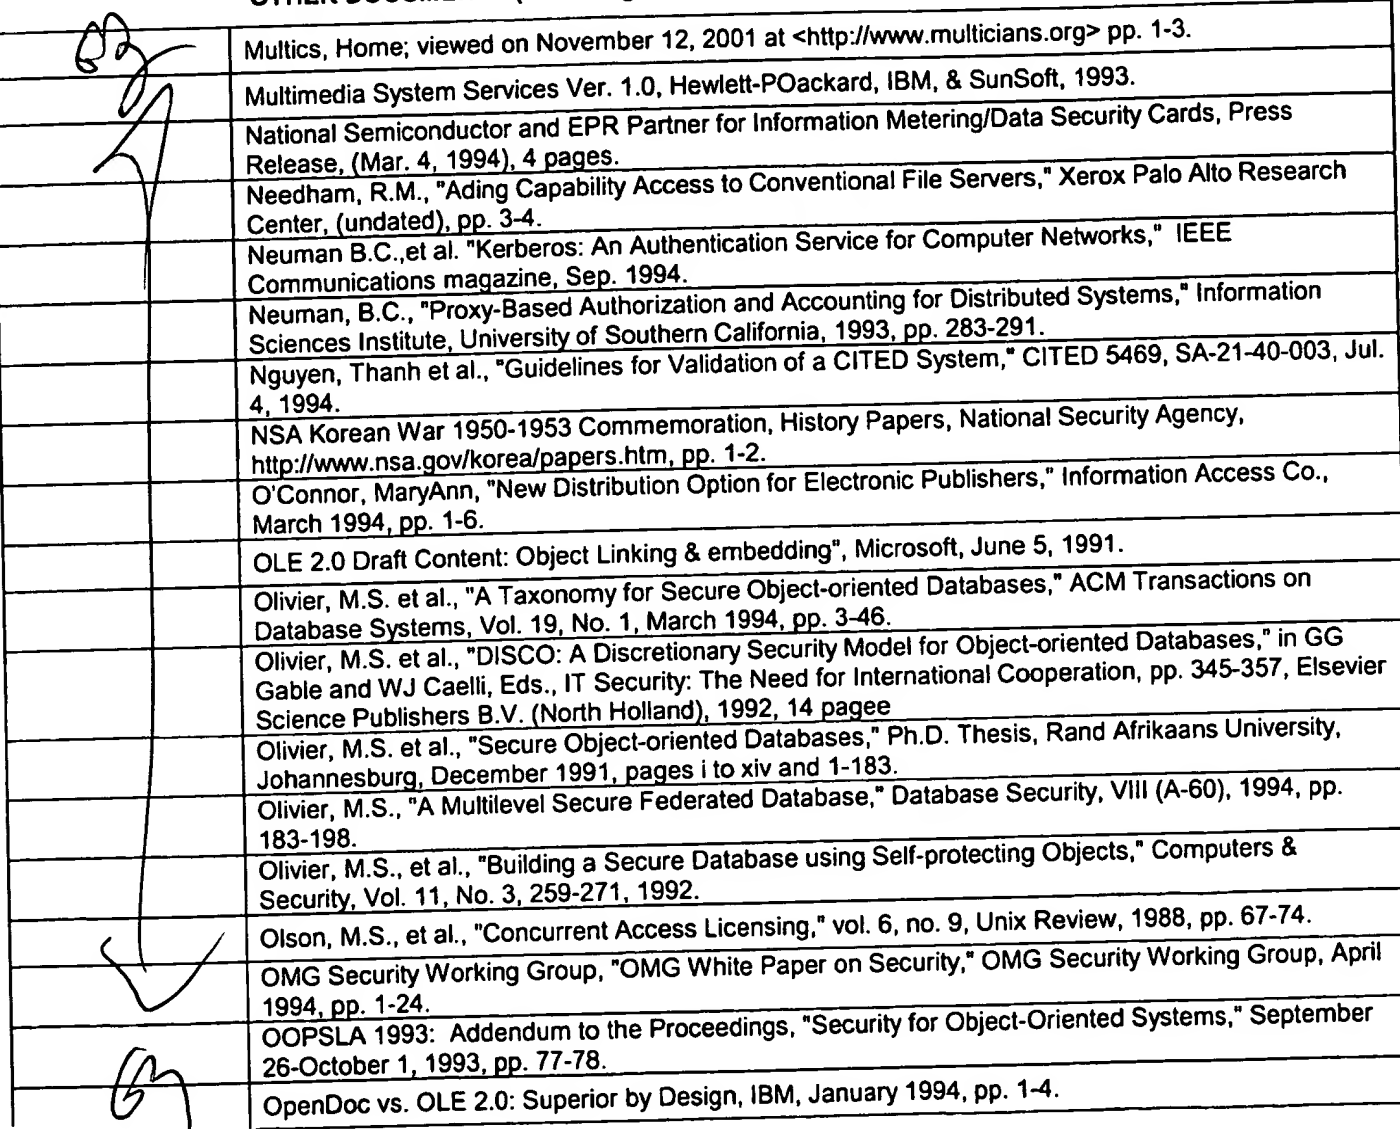 Multics, Home; viewed on November 12, 2001 at <http://www.multicians.org> pp. 1-3.
Multimedia System Services Ver. 1.0, Hewlett-POackard, IBM, & SunSoft, 1993.
National Semiconductor and EPR Partner for Information Metering/Data Security Cards, Press
Release, (Mar. 4, 1994), 4 pages.
Needham, R.M., "Ading Capability Access to Conventional File Servers," Xerox Palo Alto Research
Center, (undated), pp. 3-4.
Neuman B.C.,et al. "Kerberos: An Authentication Service for Computer Networks," IEEE
Communications magazine, Sep. 1994.
Neuman, B.C., "Proxy-Based Authorization and Accounting for Distributed Systems," Information
Sciences Institute, University of Southern California, 1993, pp. 283-291.
Nguyen, Thanh et al., "Guidelines for Validation of a CITED System," CITED 5469, SA-21-40-003, Jul.
4, 1994.
NSA Korean War 1950-1953 Commemoration, History Papers, National Security Agency,
http://www.nsa.gov/korea/papers.htm, pp. 1-2.
O'Connor, MaryAnn, "New Distribution Option for Electronic Publishers," Information Access Co.,
March 1994, pp. 1-6.
OLE 2.0 Draft Content: Object Linking & embedding", Microsoft, June 5, 1991.
Olivier, M.S. et al., "A Taxonomy for Secure Object-oriented Databases," ACM Transactions on
Database Systems, Vol. 19, No. 1, March 1994, pp. 3-46.
Olivier, M.S. et al., "DISCO: A Discretionary Security Model for Object-oriented Databases," in GG
Gable and WJ Caelli, Eds., IT Security: The Need for International Cooperation, pp. 345-357, Elsevier
Science Publishers B.V. (North Holland), 1992, 14 pagee
Olivier, M.S. et al., "Secure Object-oriented Databases," Ph.D. Thesis, Rand Afrikaans University,
Johannesburg, December 1991, pages i to xiv and 1-183.
Olivier, M.S., "A Multilevel Secure Federated Database," Database Security, VIII (A-60), 1994, pp.
183-198.
Olivier, M.S., et al., "Building a Secure Database using Self-protecting Objects," Computers &
Security, Vol. 11, No. 3, 259-271, 1992.
Olson, M.S., et al., "Concurrent Access Licensing," vol. 6, no. 9, Unix Review, 1988, pp. 67-74.
OMG Security Working Group, "OMG White Paper on Security," OMG Security Working Group, April
1994, pp. 1-24.
OOPSLA 1993: Addendum to the Proceedings, "Security for Object-Oriented Systems," September
26-October 1, 1993, pp. 77-78.
OpenDoc vs. OLE 2.0: Superior by Design, IBM, January 1994, pp. 1-4.